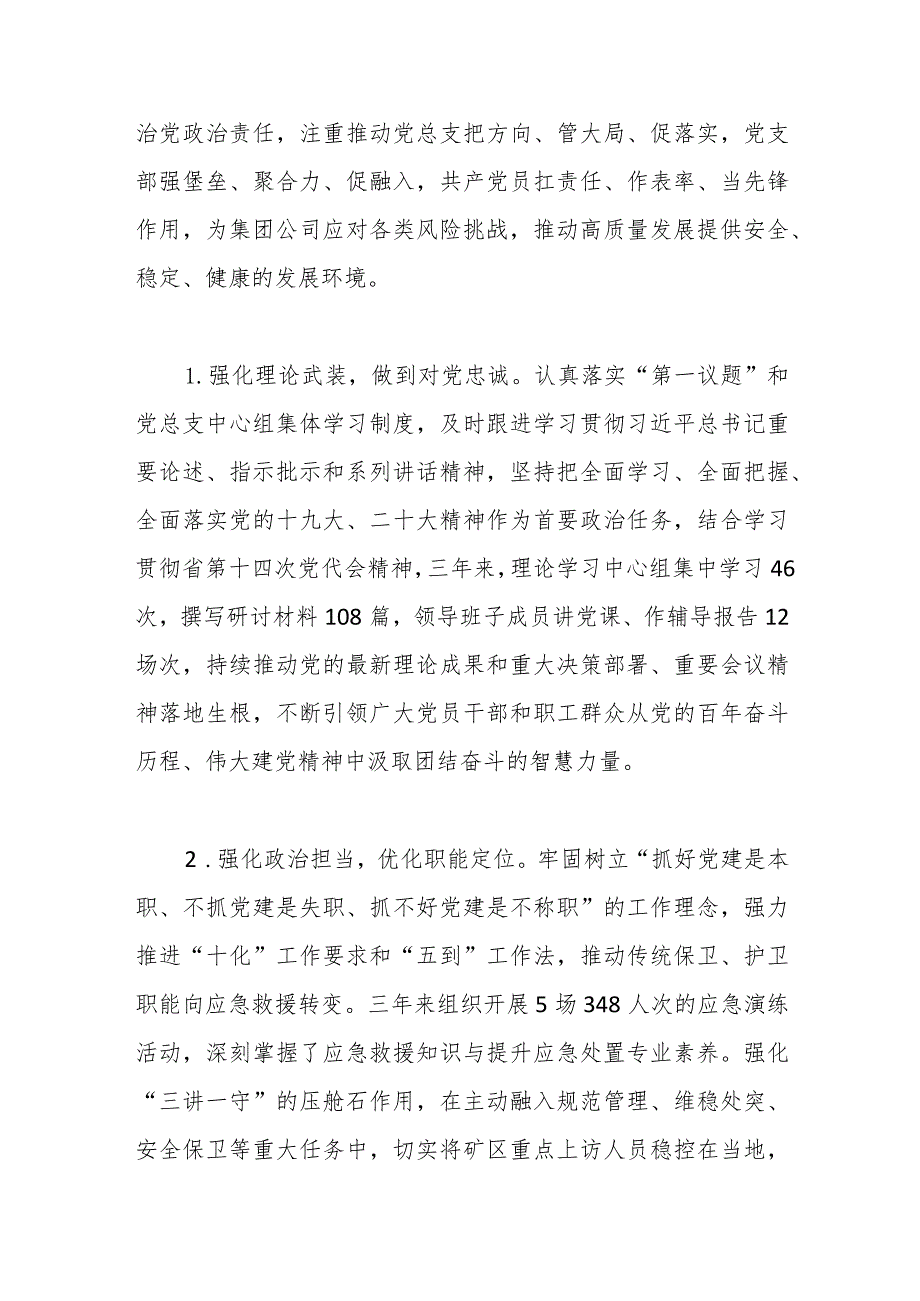 治党政治责任，注重推动党总支把方向、管大局、促落实，党支
部强堡垒、聚合力、促融入，共产党员扛责任、作表率、当先锋
作用，为集团公司应对各类风险挑战，推动高质量发展提供安全、
稳定、健康的发展环境。
1. 强化理论武装，做到对党忠诚。认真落实“第一议题”和
党总支中心组集体学习制度，及时跟进学习贯彻习近平总书记重
要论述、指示批示和系列讲话精神，坚持把全面学习、全面把握、
全面落实党的十九大、二十大精神作为首要政治任务，结合学习
贯彻省第十四次党代会精神，三年来，理论学习中心组集中学习 46
次，撰写研讨材料 108 篇，领导班子成员讲党课、作辅导报告 12
场次，持续推动党的最新理论成果和重大决策部署、重要会议精
神落地生根，不断引领广大党员干部和职工群众从党的百年奋斗
历程、伟大建党精神中汲取团结奋斗的智慧力量。
2 . 强化政治担当，优化职能定位。牢固树立“抓好党建是本
职、不抓党建是失职、抓不好党建是不称职”的工作理念，强力
推进“十化”工作要求和“五到”工作法，推动传统保卫、护卫
职能向应急救援转变。三年来组织开展 5 场 348 人次的应急演练
活动，深刻掌握了应急救援知识与提升应急处置专业素养。强化
“三讲一守”的压舱石作用，在主动融入规范管理、维稳处突、
安全保卫等重大任务中，切实将矿区重点上访人员稳控在当地，